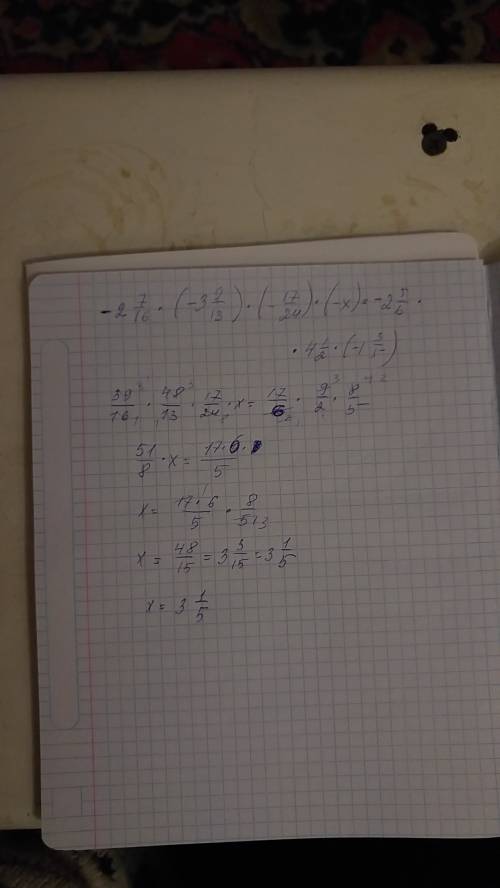 -2 7/16 · (-3 9/13) · (-17/24) · (-x) = -2 5/6 ·
· 4 1/2 · (-1 3/5)
39/16 · 48/13 · 17/24 · x = 17/6 · 9/2 · 8/5
51/8 · x = 17·6/5
x = 17·6/5 · 8/51
x = 48/15 = 3 3/15 = 3 1/5
x = 3 1/5